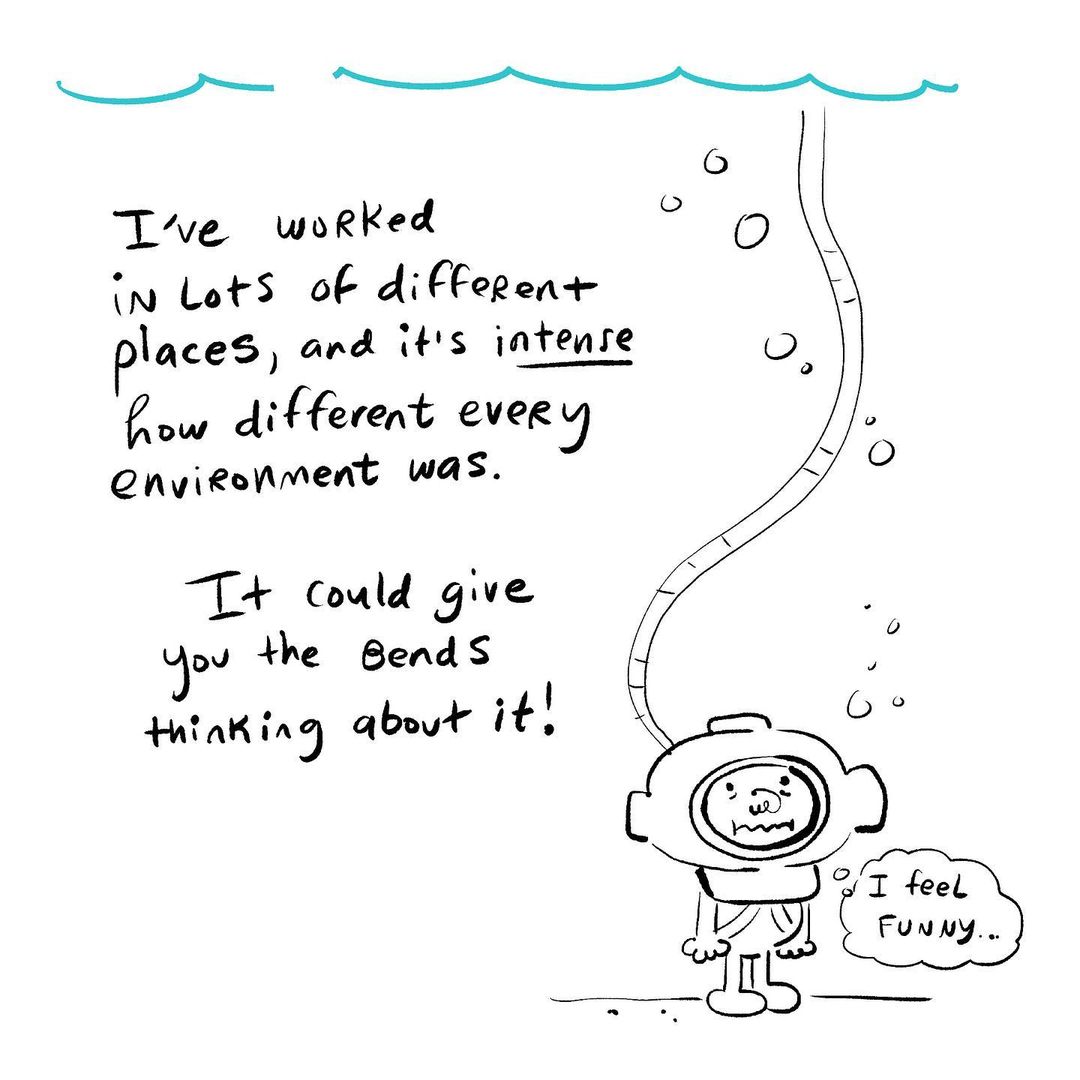 I've worked
in lots of different
places, and it's intense
how different every
environment was.
It could give
you the Bends
thinking about it!
I feel
FUNNY...